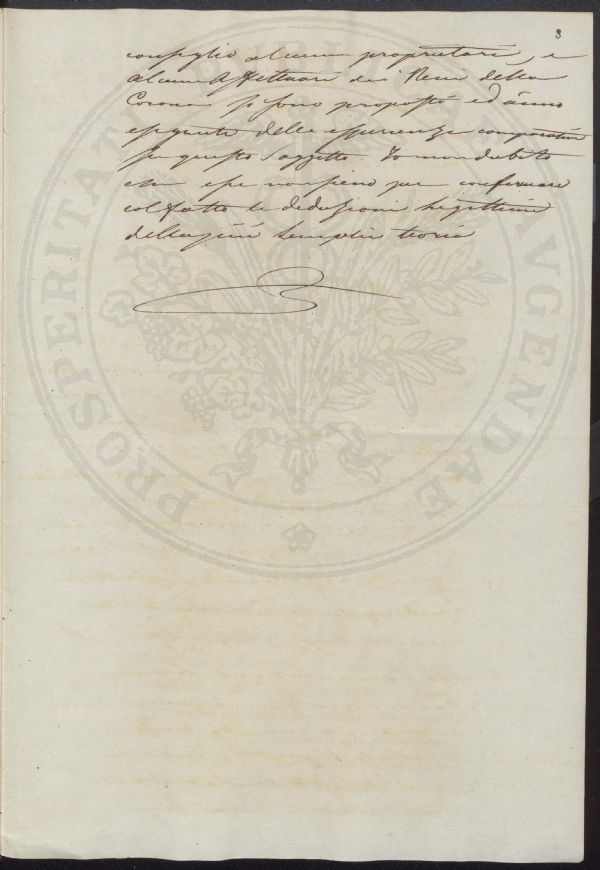 8
consiglio alcuni proprietari, e
alcuni Affittuari dei Beni della
Corona si sono proposti ed ànno
eseguite delle esperienze comparative
su questo soggetto Io non dubito
che esse non sieno per confermare
col fatto le deduzioni legittime
della più semplice teoria
PROSPERITATI PUBLICAE AVGENDAE